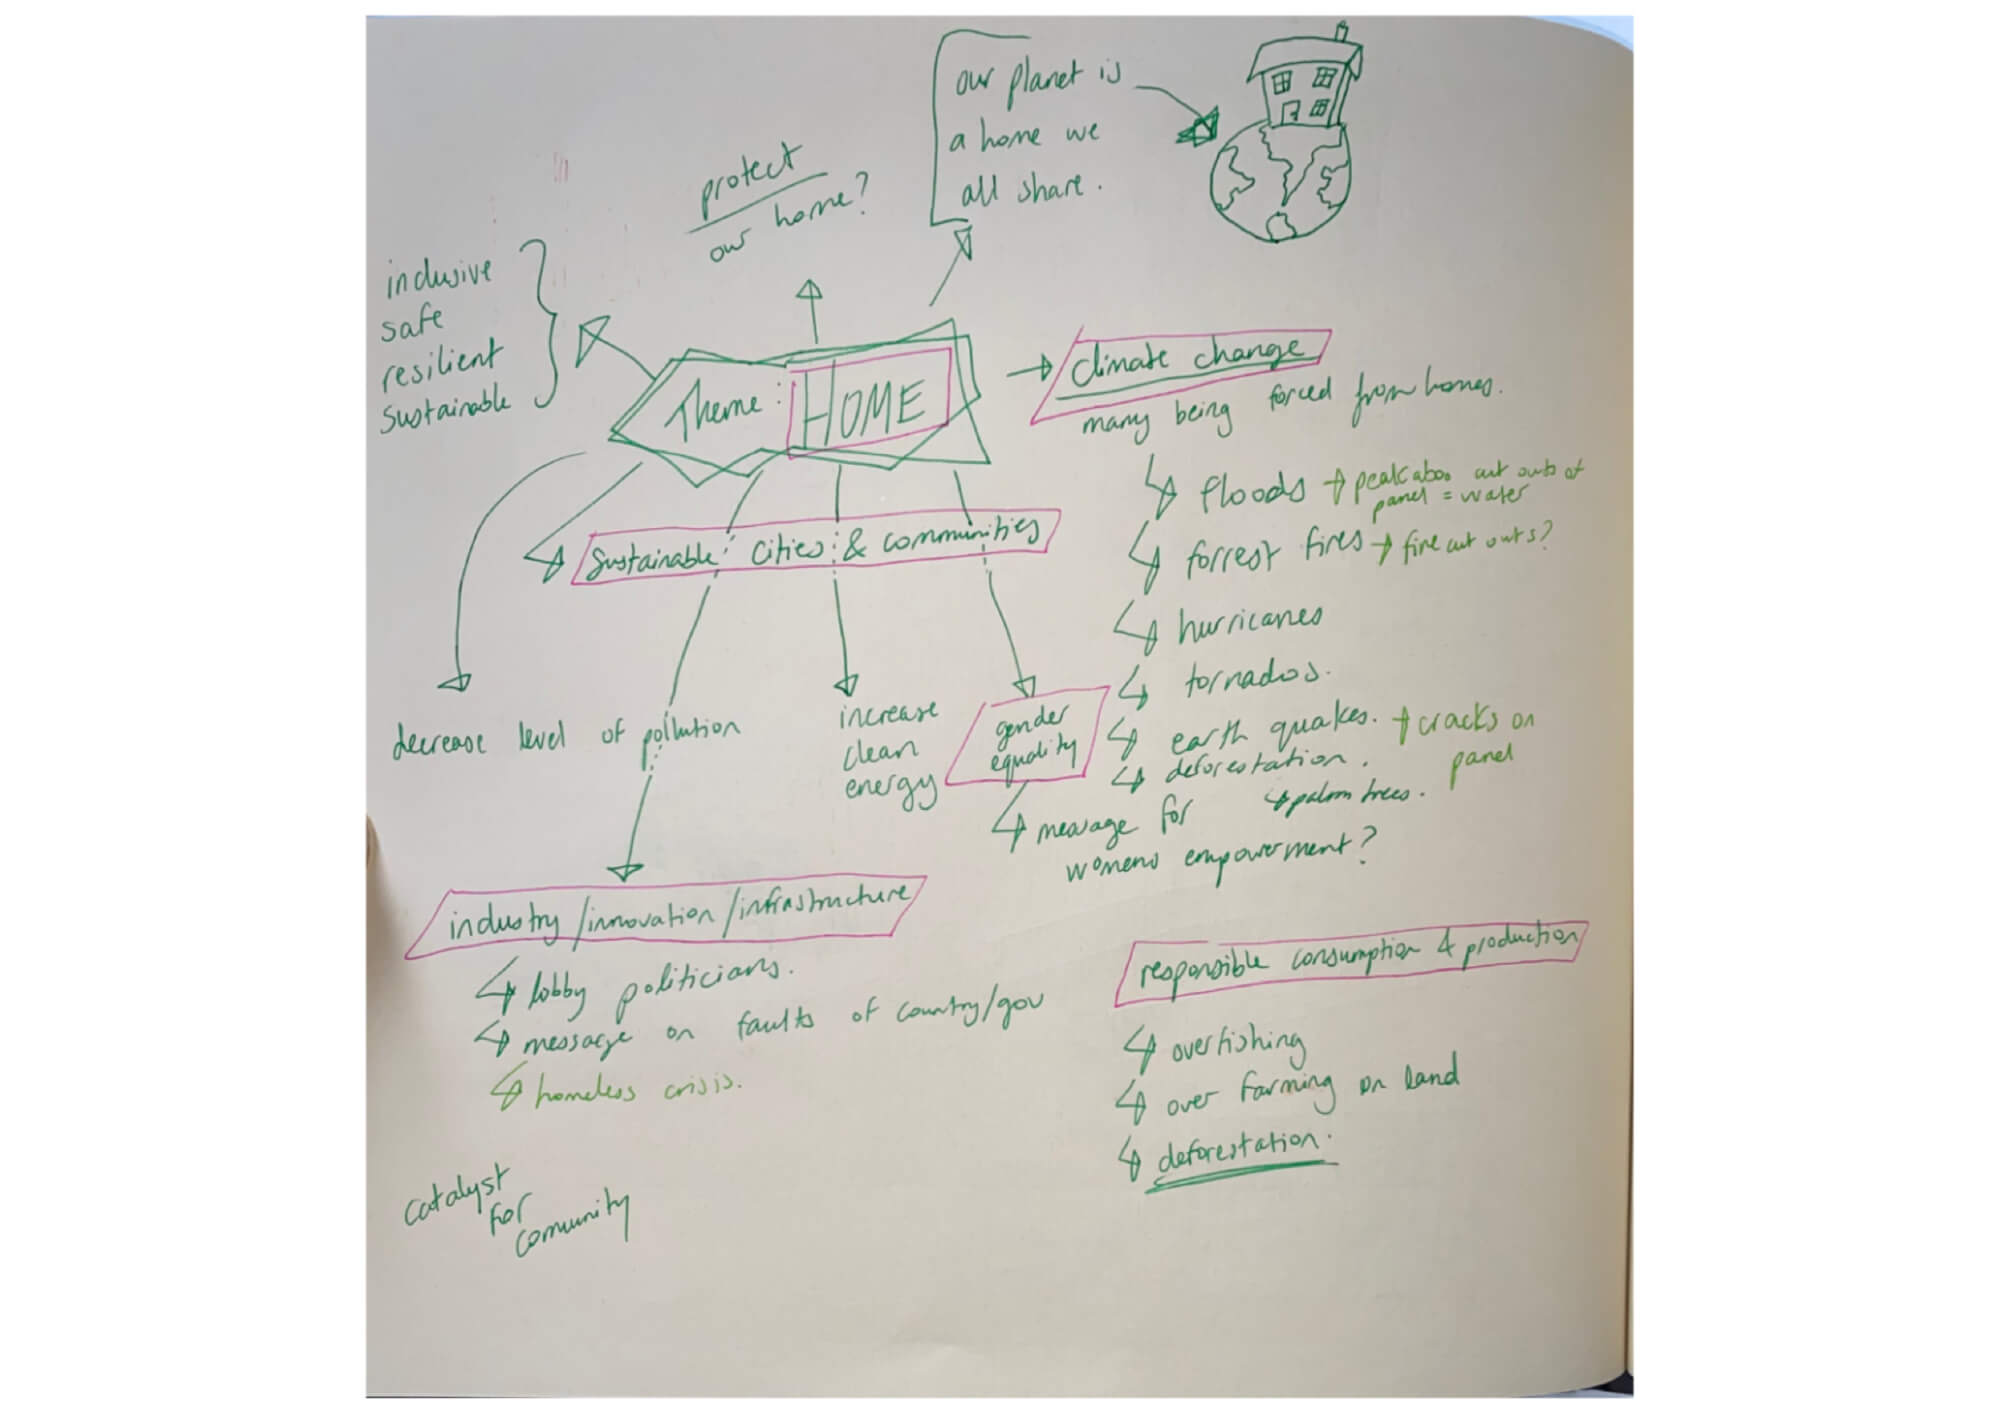 our planet is
a home we
all share.
protect
our home?
inclusive
safe
resilient
sustainable
Theme: HOME
climate change
many being forced from homes.
floods → peakaboo cut outs of
panel = water
forrest fires → fire cut outs?
hurricanes
tornados.
earth quakes. → cracks on
panel
deforestation.
palm trees.
Sustainable cities & communities
decrease level of pollution
increase
clean
energy
gender
equality
message for
womens empowerment?
industry/innovation/infrastructure
lobby politicians.
message on faults of country/gov
homeless crisis.
responsible consumption & production
overfishing
over farming on land
deforestation.
catalyst
for
comunity